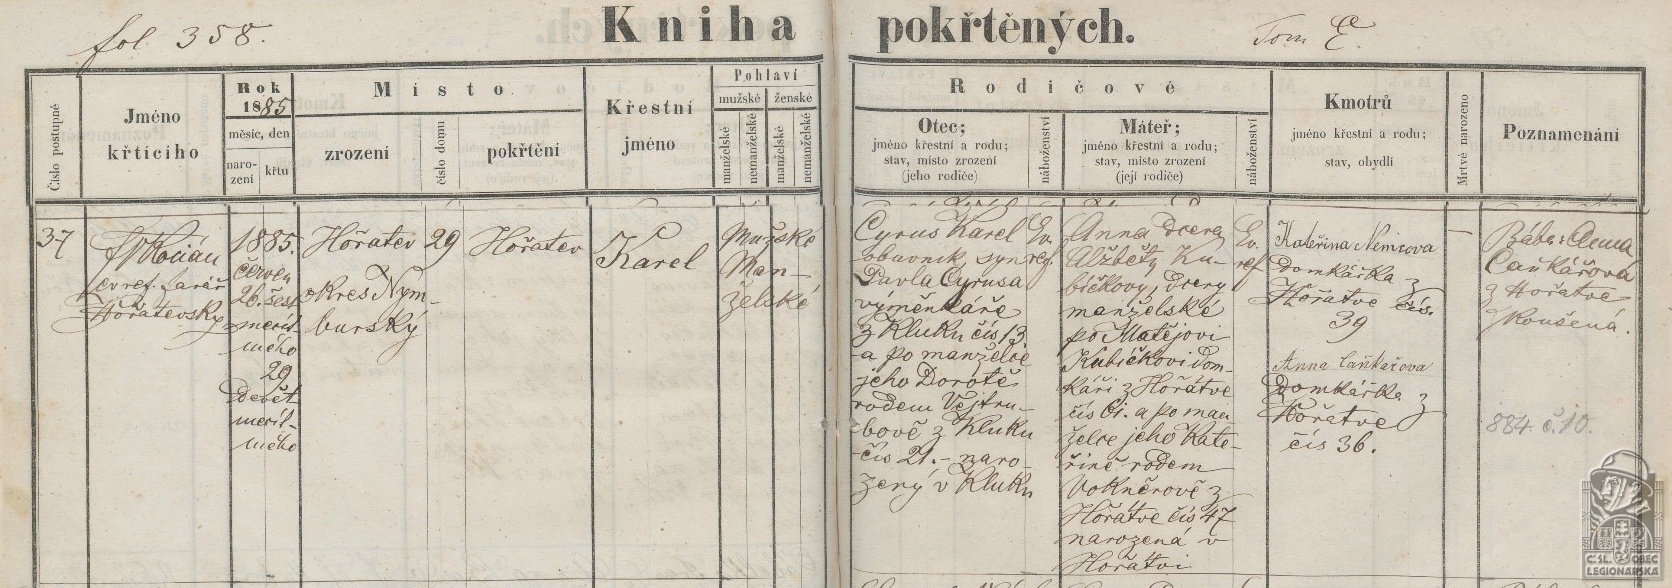 fol 358.
Kniha pokřtěných.
Tom E.
Číslo postupné
Jméno
křtícího
Rok
1885
měsíc, den
naro-
zení
křtu
Místo
zrození
číslo domu
pokřtění
Křestní
jméno
Pohlaví
mužské
ženské
manželské
nemanželské
manželské
nemanželské
Rodičové
Otec;
jméno křestní a rodu;
stav, místo zrození
(jeho rodiče)
náboženství
Máteř;
jméno křestní a rodu;
stav, místo zrození
(její rodiče)
náboženství
Kmotrů
jméno křestní a rodu;
stav, obydlí
Mrtvě narozeno
Poznamenání
37
Kočián
ev. ref. farář
Hořátevský
1885.
červen
26. šest
mecít-
mého
29
devět
mecít-
mého
Hořatev
okres Nym-
burský
29
Hořatev
Karel
Mužské
Man-
želské
Cyrus Karel
obuvník, syn
Pavla Cyrusa
výměnkáře
z Kluku čís 13
a po manželce
jeho Dorotě
rodem Vejtru-
bově z Kluku
čís 21. naro-
zený v Kluku
Ev.
ref
Anna dcera
Alžběty Ku-
bíčkovy, dcery
manželské
po Matějovi
Kubíčkovi dom-
káři z Hořátve
čís 61. a po man
želce jeho Kate-
řině rodem
Vokněrově z
Hořátve čís 47
narozená v
Hořátvi
Ev.
ref
Kateřina Nemcova
domkářka z
Hořatve čís.
39
Anna Caňkařova
domkářka z
Hořatve
čís 36.
—
Bába: Anna
Caňkářová
z Hořatve
zkoušená.
884 č. 10.
ČSL. OBEC
LEGIONÁŘSKÁ